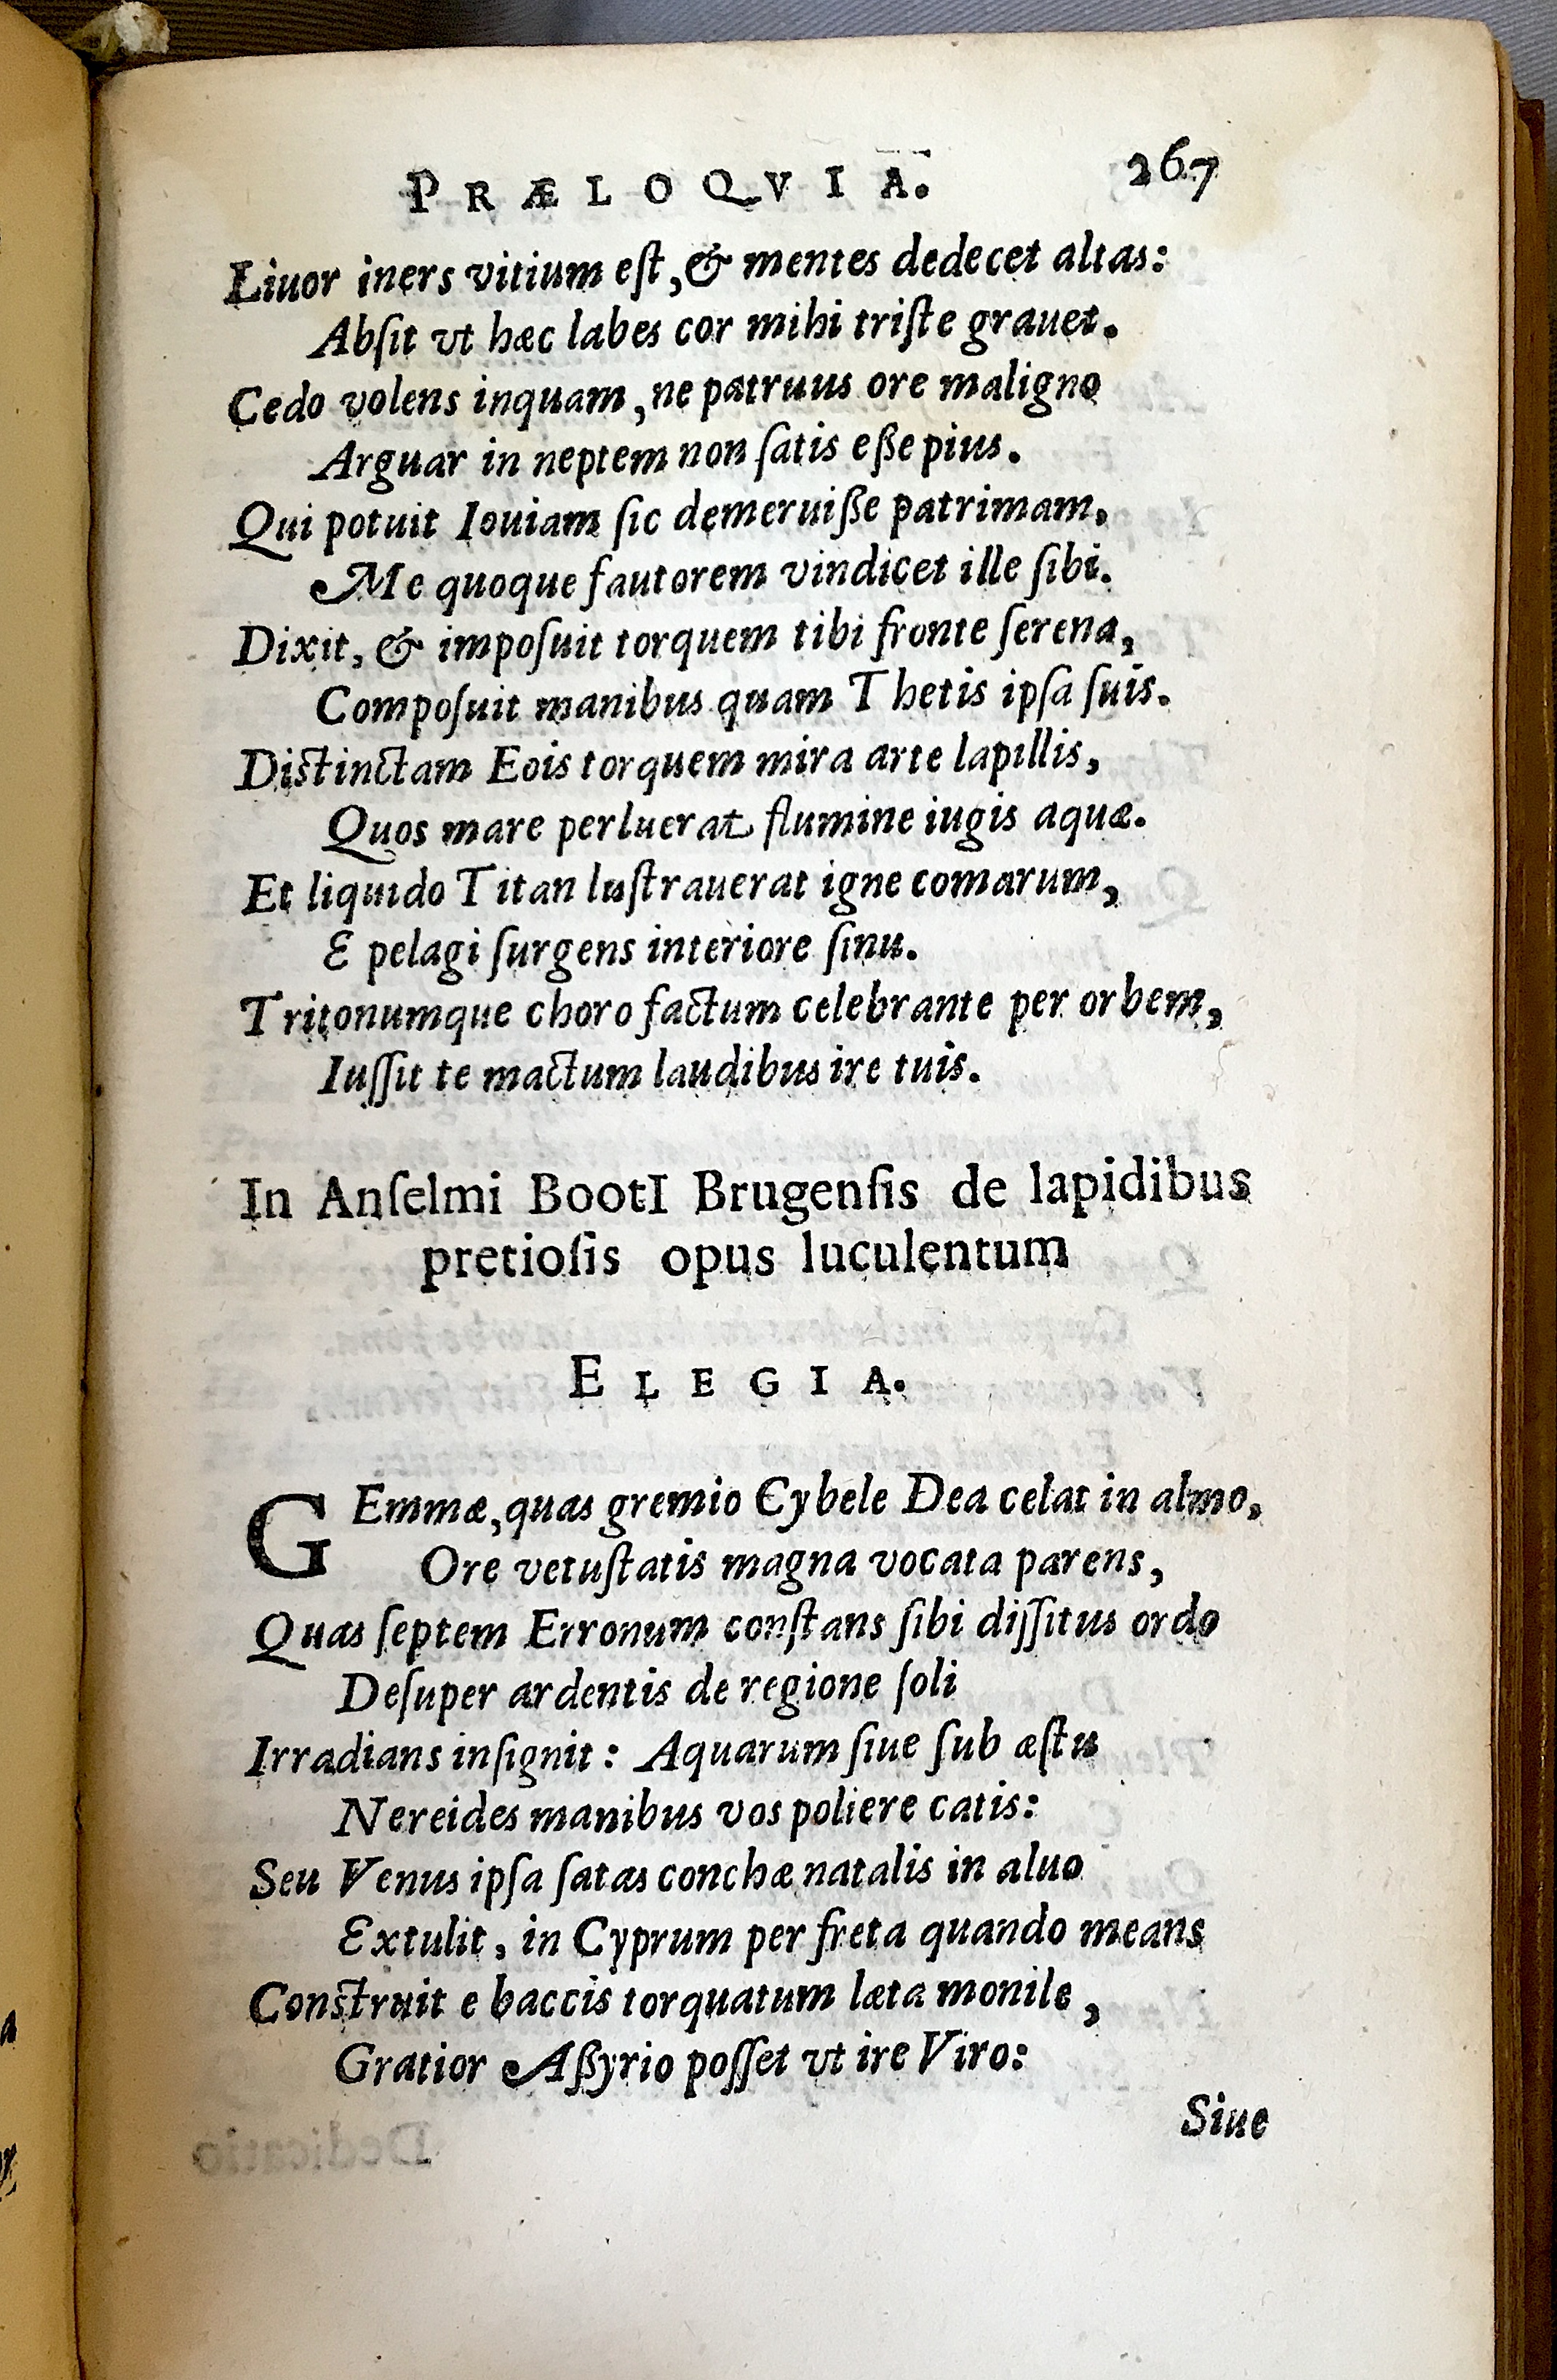 PRÆLOQVIA. 267
Liuor iners vitium eſt, & mentes dedecet altas:
Abſit vt hæc labes cor mihi triſte grauet.
Cedo volens inquam, ne patruus ore maligno
Arguar in neptem non ſatis eße pius.
Qui potuit Iouiam ſic demeruiße patrimam,
Me quoque fautorem vindicet ille ſibi.
Dixit, & impoſuit torquem tibi fronte ſerena,
Compoſuit manibus quam Thetis ipſa ſuis.
Diſtinctam Eois torquem mira arte lapillis,
Quos mare perluerat flumine iugis aquæ.
Et liquido Titan luſtrauerat igne comarum,
E pelagi ſurgens interiore ſinu.
Tritonumque choro factum celebrante per orbem,
Iuſſit te mactum laudibus ire tuis.
In Anſelmi BootI Brugenſis de lapidibus
pretioſis opus luculentum
ELEGIA.
GEmmæ, quas gremio Cybele Dea celat in almo,
Ore vetuſtatis magna vocata parens,
Quas ſeptem Erronum conſtans ſibi diſſitus ordo
Deſuper ardentis de regione ſoli
Irradians inſignit: Aquarum ſiue ſub æſtu
Nereides manibus vos poliere catis:
Seu Venus ipſa ſatas conchæ natalis in aluo
Extulit, in Cyprum per freta quando means
Conſtruit e baccis torquatum læta monile,
Gratior Aßyrio poſſet vt ire Viro:
Siue